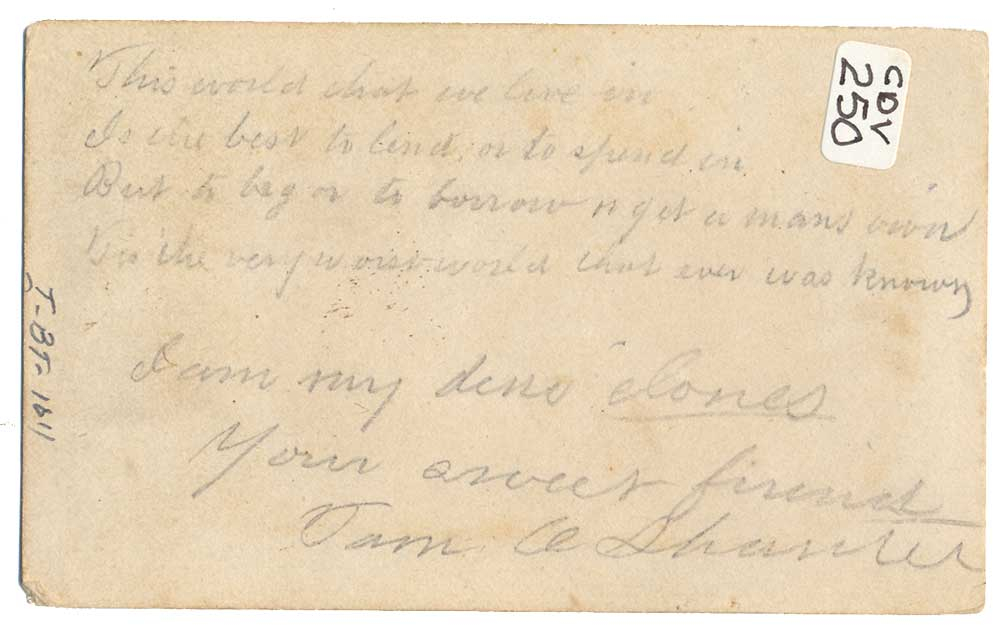 This world that we live in
Is the best to lend, or to spend in.
But to beg or to borrow or get a mans own
Tis the very worst world that ever was known
I am my
Your sweet friend
Tam O Shanter
CDV
250